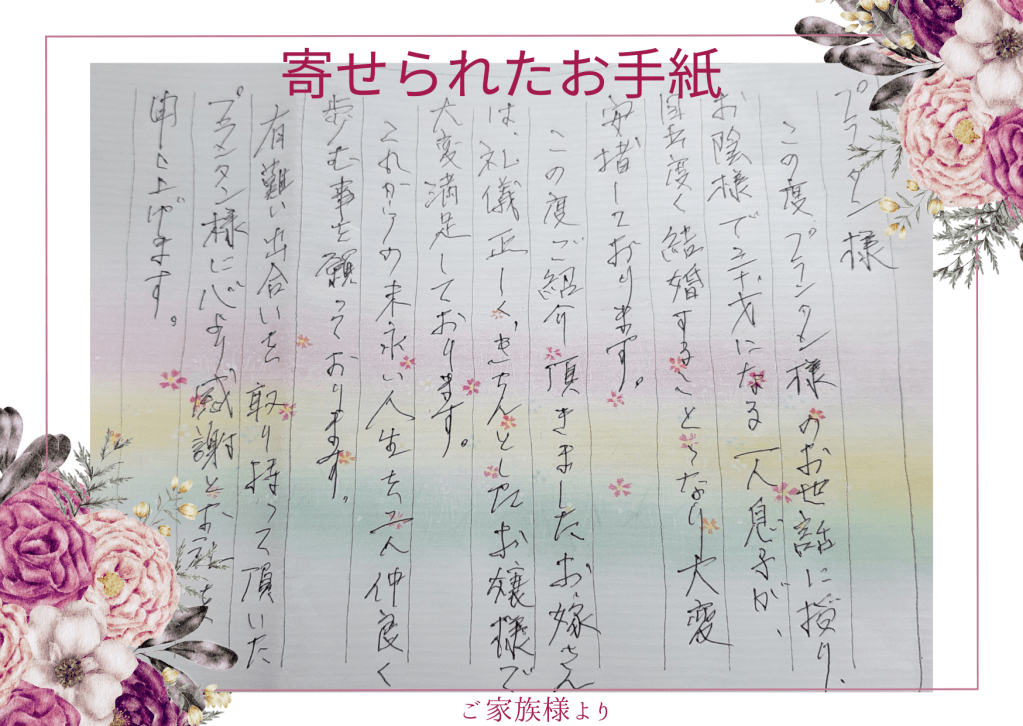 寄せられたお手紙
プランタン様
この度プランタン様のお世話に授り、
お陰様で三十才になる一人息子が、
目出度く結婚することとなり大変
安堵しております。
この度ご紹介頂きましたお嫁さん
は、礼儀正しく、きちんとしたお嬢様で
大変満足しております。
これからの末永い人生を二人仲良く
歩む事を願っております。
有難い出合いを取り持って頂いた
プランタン様に心より感謝とお礼を
申し上げます。
ご家族様より